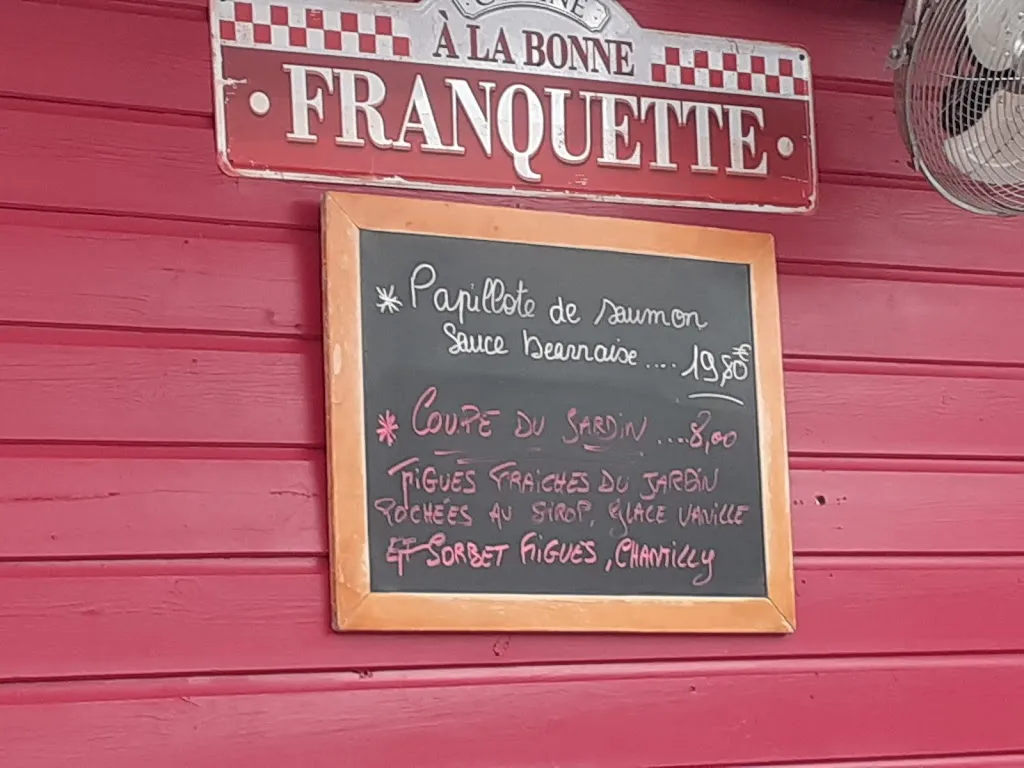 À LA BONNE
· FRANQUETTE ·
* Papillote de saumon
Sauce bearnaise .... 19,80€
* COUPE DU JARDIN ....8,00
FIGUES FRAICHES DU JARDIN
POCHÉES AU SIROP, GLACE VANILLE
ET SORBET FIGUES, CHANTILLY